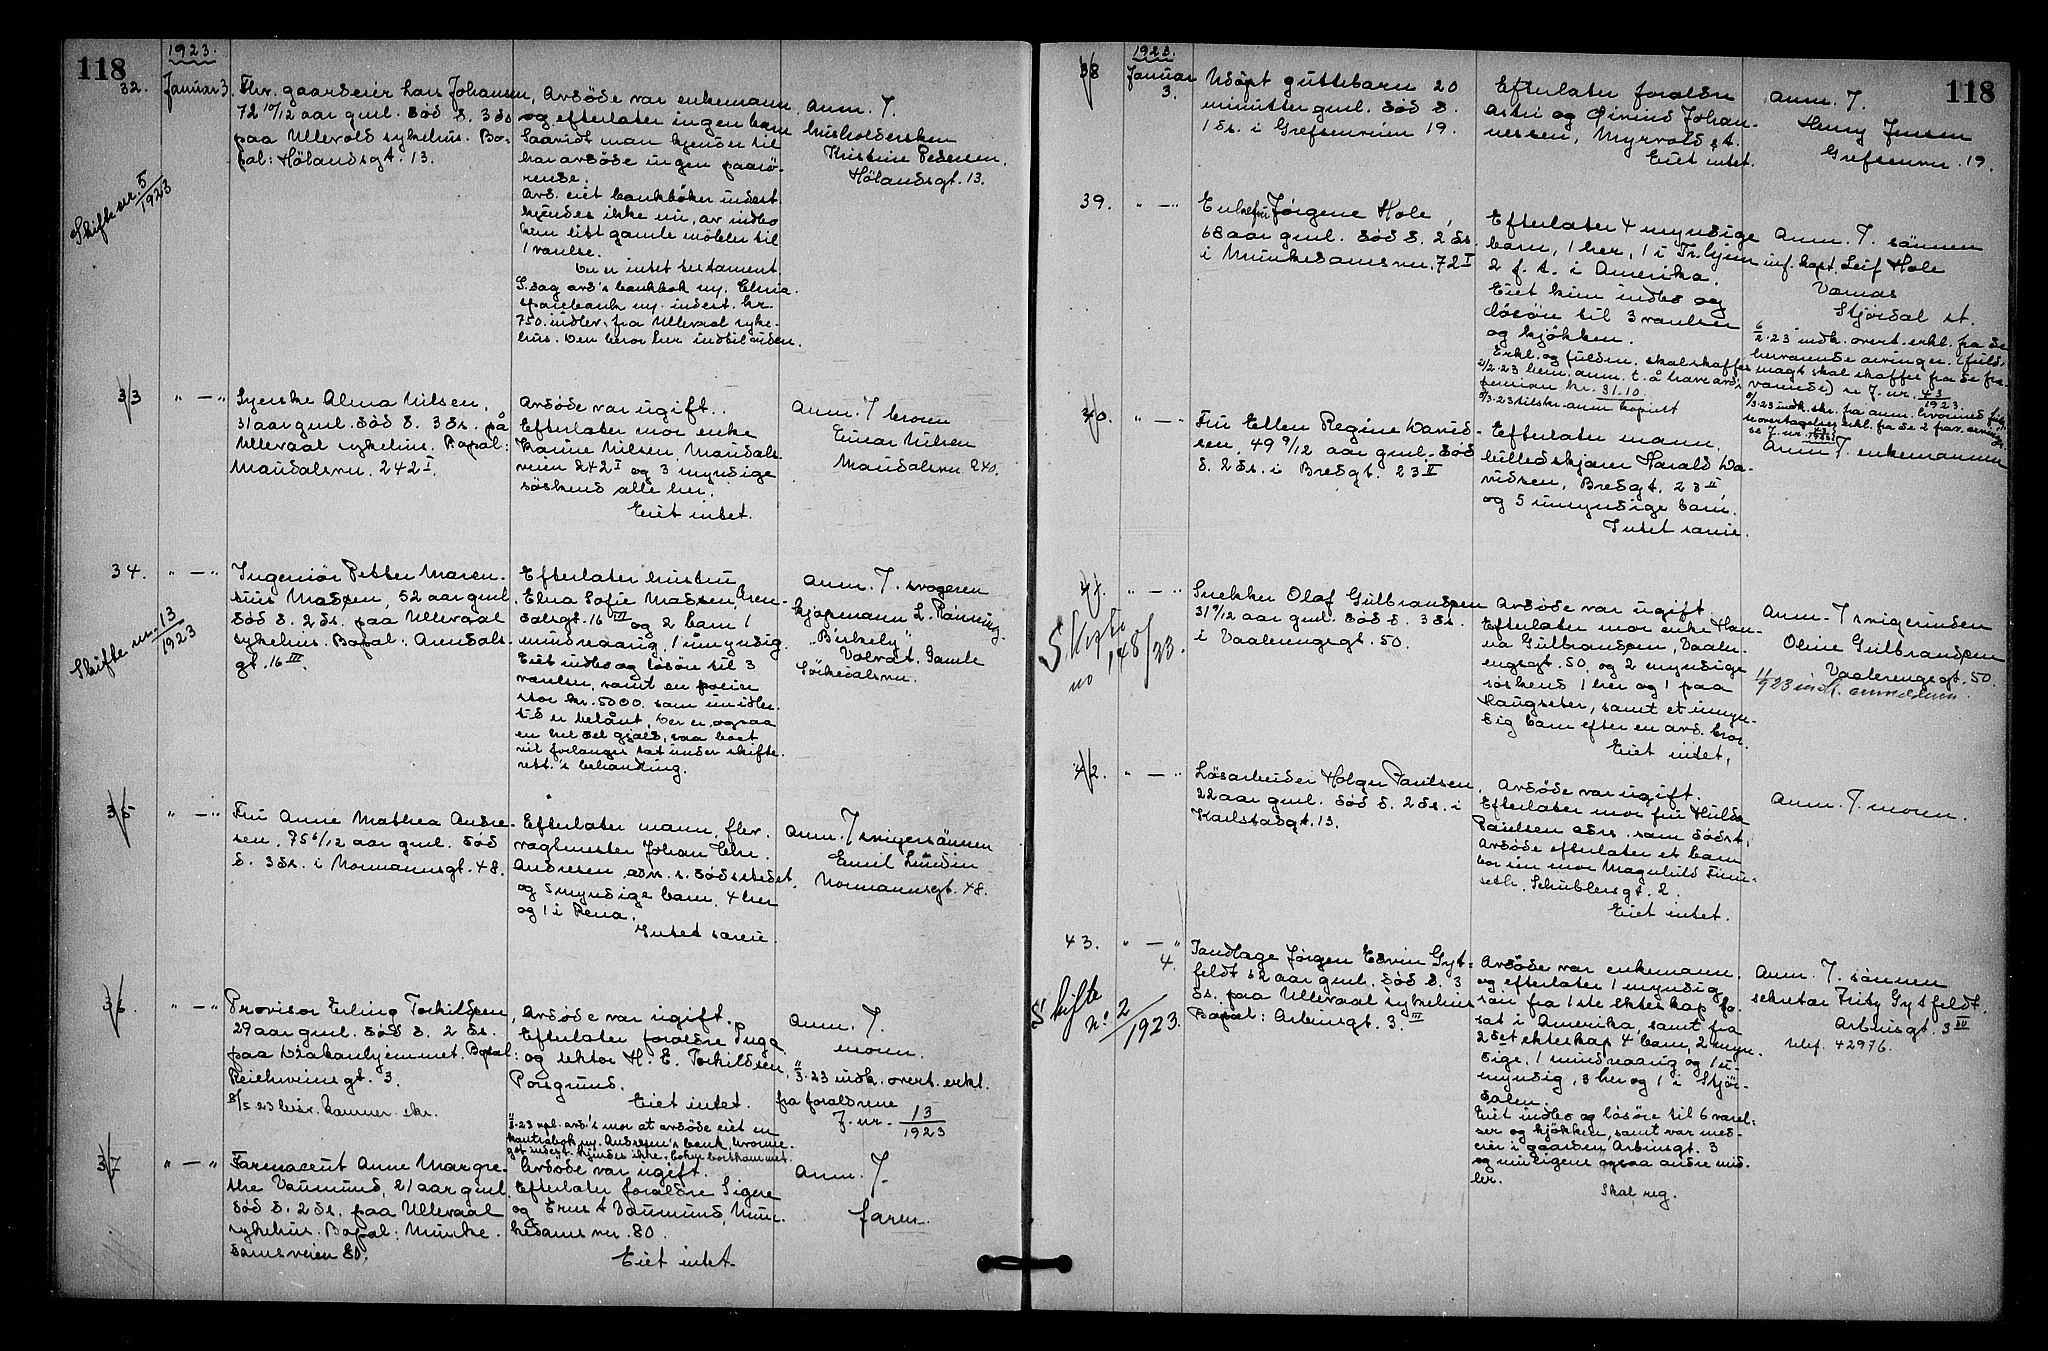 118
1923.
32. Januar 3. Fhv. gaardeier Lars Johansen,
72 10/12 aar gml. död d. 3 ds
paa Ullevold sykehus. Bo-
pæl: Hölandsgt. 13.
Skifte nr. 5/1923
Avdöde var enkemann
og efterlater ingen barn
Saavidt man kjender til
har avdöde ingen paarö-
rende.
Avd. eiet bankböker indest.
kjendes ikke nu, av indbo
kun litt gamle möbler til
1 værelse.
Der er intet testament.
S.dag avd's bankbok
sparebank ny. indest. kr
750. indlev. fra Ullevaal syke-
hus. Den beror her indtil videre.
Anm. 7.
husholdersken
Kristine Pedersen,
Hölandsgt. 13.
33 " — " Syerske Alma Nilsen,
31 aar gml. död d. 3 ds. på
Ullevaal sykehus. Bopæl:
Maridalsvn. 242 I.
Avdöde var ugift.
Efterlater mor enke
Karine Nilsen, Maridals-
veien 242 I og 3 myndige
söskend alle her.
Eiet intet.
Anm. 7 broren
Einar Nilsen
Maridalsvn. 240.
34. " — " Ingeniör Petter Maren-
tius Madsen, 52 aar gml
död d. 2 ds. paa Ullevaal
sykehus. Bopæl: Arendals-
gt. 16 III.
Skifte nr. 13/1923
Efterlater hustru
Elna Sofie Madsen, Aren-
dalsgt. 16 III og 2 barn 1
mindreaarig, 1 umyndig
Eiet indbo og lösöre til 3
værelser, samt en
stor kr. 5000. som imidler-
tid er belånt. Der er ogsaa
en hel del gjæld, saa boet
vil forlanges tat under skifte-
rett.'s behandling.
Anm. 7. svogeren
kjöpmann L. Rönning.
"Birkely"
Volvat. Gamle
Sörkedalsvn.
35 " — " Fru Anne Mathea Andre-
sen, 75 6/12 aar gml. död
d. 3 ds. i Normannsgt. 48.
Efterlater mann, fhv.
vagtmester Johan Chr.
Andresen, adr. s. dödsstedet,
og 5 myndige barn, 4 her
og 1 i Rena.
Intet særeie.
Anm. 7 svigersönnen
Emil Lundin
Normannsgt. 48.
36. " — " Provisor Erling Torkildsen
29 aar gml. död d. 2 ds.
paa Diakonhjemmet. Bopæl:
Reichweinsgt. 3.
8/5 23 besv. kammer. skr.
Avdöde var ugift.
Efterlater forældre Inga
og lektor H. E. Torkildsen,
Porsgrund.
Eiet intet.
avd's mor at avdöde eiet en
kontrabok ny. Andresen's bank, hvorme-
get indest. kjendes ikke. boken bortkommet.
Anm. 7.
moren.
23 indk. overt. erkl.
fra forældrene
J. nr. 13/1923
37 " — " Farmaceut Anne Margre-
the Vaumund, 21 aar gml.
död d. 2 ds. paa Ullevaal
sykehus. Bopæl: Munke-
damsveien 80.
Avdöde var ugift.
Efterlater forældre Signe
og Ernst Vaumund, Mun-
kedamsvn. 80.
Eiet intet.
Anm. 7.
faren.
118
1923.
38 Januar 3. Udöpt guttebarn 20
minutter gml. död d.
1 ds. i Grefsenveien 19.
Efterlater forældre
Astri og Öivind Johan-
nessen, Myrvold st.
Eiet intet.
Anm. 7.
Henry Jensen
Grefsenvn. 19.
39. " — " Enkefru Jörgine Hole,
68 aar gml. död d. 2 ds.
i Munkedamsvn. 72 I
Efterlater 4 myndige
barn, 1 her, 1 i Tr.hjem
2 f. t. i Amerika.
Eiet kun indbo og
lösöre til 3 værelser
og kjökken.
Erkl. og fuldm. skal skaffes
2/2-23 hem. anm. t. å have avd's
pension kr. 31.10
8/3-23 tilskr. anm kopiert
Anm. 7. sönnen
inf. kapt. Leif Hole
Værnes
Stjördal st.
6/2-23 indk. overt. erkl. fra de
herværende arvinger. (fuld-
magt skal skaffes fra de fra-
værende) se J. nr. 43/1923.
8/3-23 indk. skr. fra anm. hvorved
overtagelses erkl. fra de 2 frav. arvinger
se J. nr. 43/1923
40. " — " Fru Ellen Regine David-
sen, 49 9/12 aar gml. död
d. 2 ds. i Bredgt. 23 II
Efterlater mann,
Harald Da-
vidsen, Bredgt. 23 II,
og 5 umyndige barn.
Intet særeie.
Anm 7. enkemannen
41. " — " Snekker Olaf Gulbrandsen
31 9/12 aar gml. död d. 3 ds.
i Vaalerengegt. 50.
Skifte
no 148/23.
Avdöde var ugift.
Efterlater mor enke Han-
na Gulbrandsen, Vaaler-
engegt. 50, og 2 myndige
söskend 1 her og 1 paa
Haugseter, samt et umyn-
dig barn efter en avd. bror.
Eiet intet.
Anm. 7 svigerinden
Oline Gulbrandsen
Vaalerengegt. 50.
42. " — " Lösarbeider Holger Paulsen,
22 aar gml. död d. 2 ds. i
Karlstadgt. 13.
Avdöde var ugift.
Efterlater mor fru Hulda
Paulsen adrs. som dödst.
Avdöde efterlater et barn
hos sin mor Magnhild Finn-
seth, Schüblersgt. 2.
Eiet intet.
Anm. 7. moren.
43. " — " 4. Tandlæge Jörgen Edvin Gyt-
feldt 62 aar gml. död d. 3
ds. paa Ullevaal sykehus
Bopæl: Arbinsgt. 3. III
Skifte
no 2/1923.
Avdöde var enkemann.
og efterlater 1 myndig
sön fra 1ste ekteskap bo-
sat i Amerika, samt fra
2det ekteskap 4 barn, 2 myn-
dige, 1 mindreaarig og 1 u-
myndig, 3 her og 1 i Stjör-
dalen.
Eiet indbo og lösöre til 6 værel-
ser og kjökken, samt var med-
eier i gaarden Arbinsgt. 3
og muligens ogsaa andre mid-
ler.
Skal reg.
Anm. 7. sönnen
sekretær Fritz Gytfeldt.
Arbinsgt. 3 III
telef. 42976.